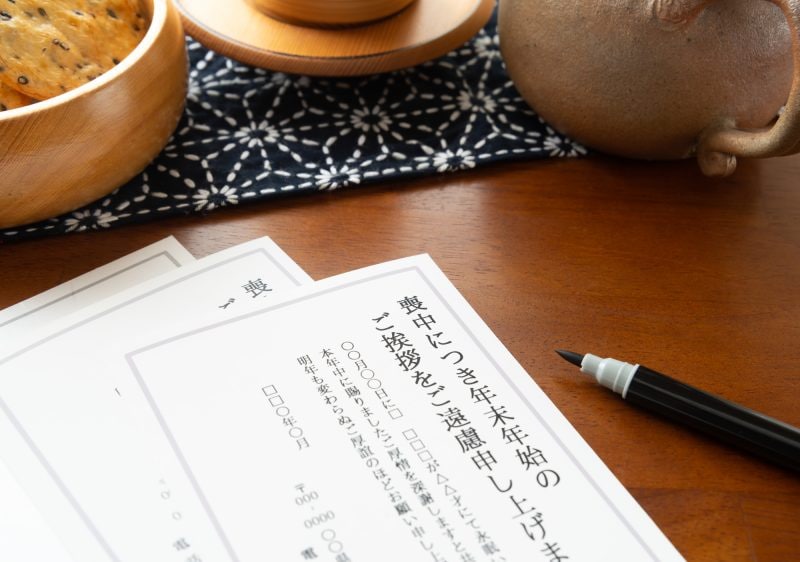 喪中につき年末年始の
ご挨拶をご遠慮申し上げま
〇〇月〇〇日に□　□□□が△△才にて永眠い
本年中に賜りましたご厚情を深謝しますと共
明年も変わらぬご厚誼のほどお願い申し上
□□〇年〇月
〒000-0000 〇〇県
電
喪
ご
電話